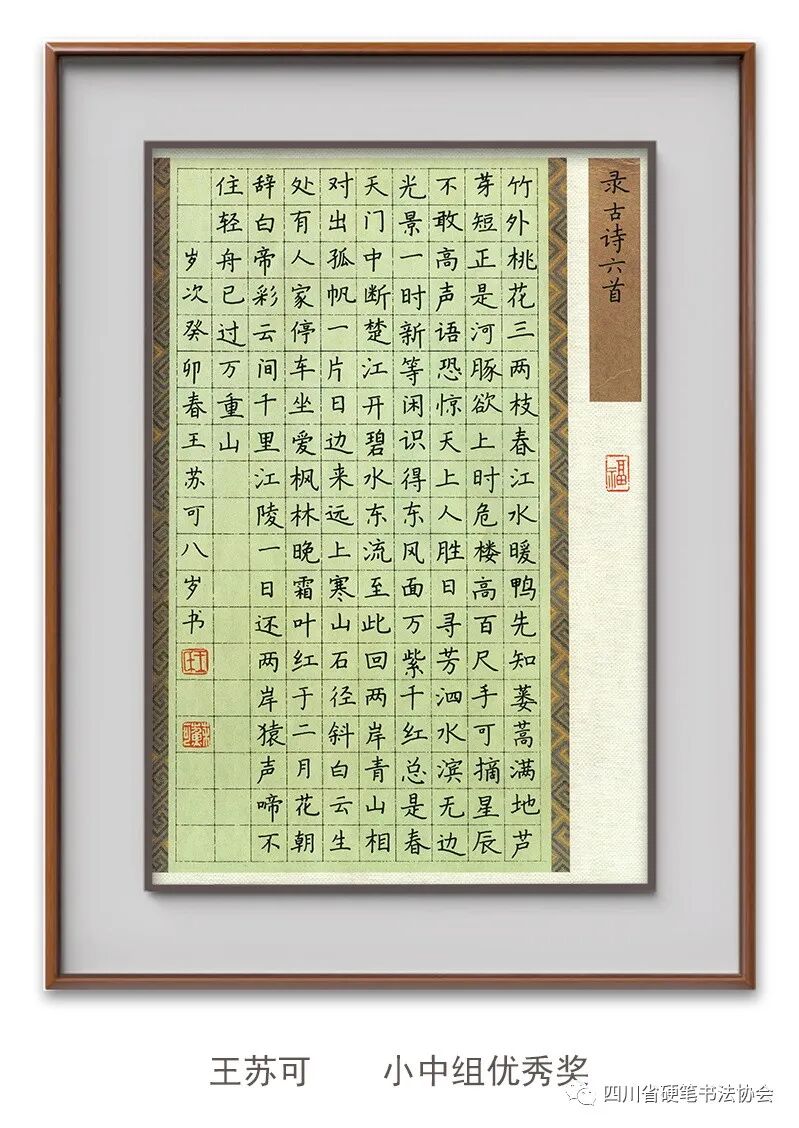 录古诗六首
福
竹外桃花三两枝春江水暖鸭先知蒌蒿满地芦
芽短正是河豚欲上时危楼高百尺手可摘星辰
不敢高声语恐惊天上人胜日寻芳泗水滨无边
光景一时新等闲识得东风面万紫千红总是春
天门中断楚江开碧水东流至此回两岸青山相
对出孤帆一片日边来远上寒山石径斜白云生
处有人家停车坐爱枫林晚霜叶红于二月花朝
辞白帝彩云间千里江陵一日还两岸猿声啼不
住轻舟已过万重山
岁次癸卯春王苏可八岁书
王苏可 小中组优秀奖
四川省硬笔书法协会